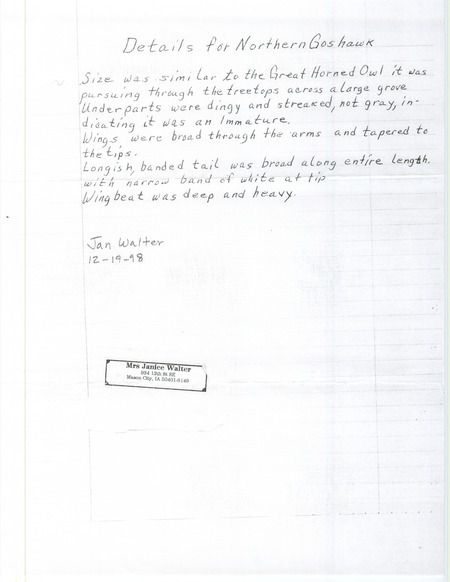 Details for Northern Goshawk
Size was similar to the Great Horned Owl it was
pursuing through the treetops across a large grove
Underparts were dingy and streaked, not gray, in-
dicating it was an Immature.
Wings were broad through the arms and tapered to
the tips.
Longish, banded tail was broad along entire length
with narrow band of white at tip
Wingbeat was deep and heavy.
Jan Walter
12-19-98
Mrs Janice Walter
Mason City, IA 50401-6149